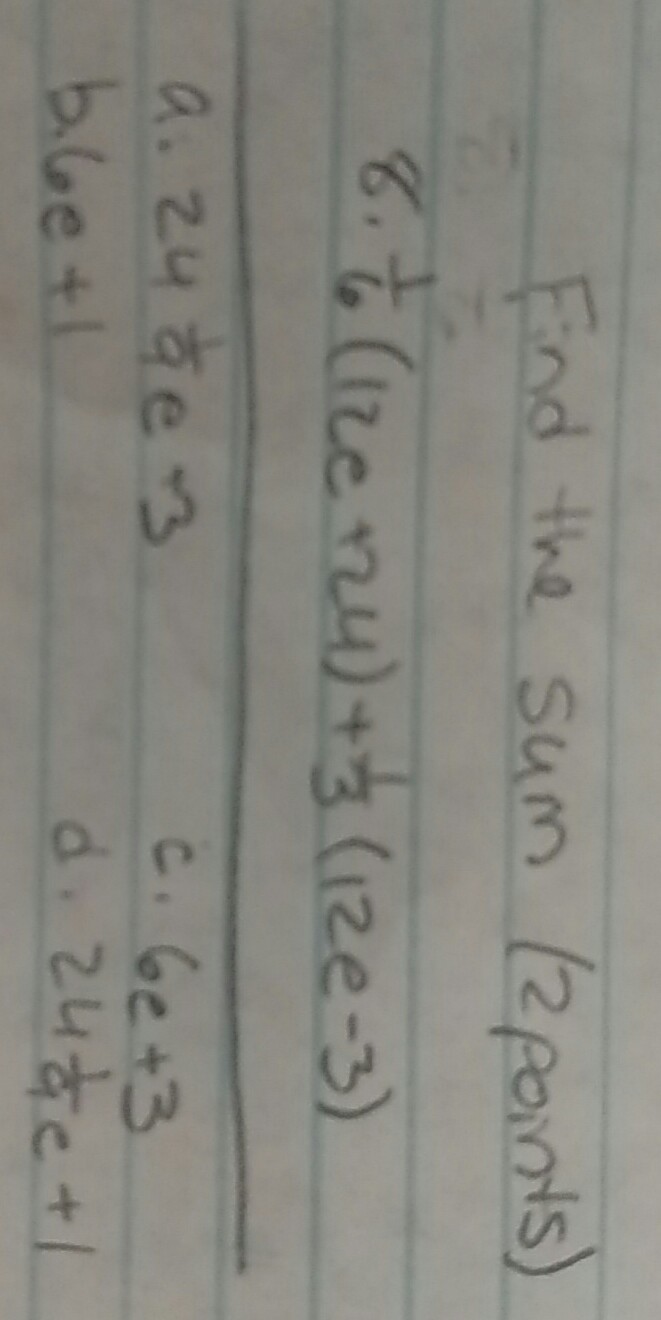 Find the sum (2 points)
8. 1/6 (12e + 24) + 1/3 (12e - 3)
a. 24 1/9 e + 3
c. 6e + 3
b. 6e + 1
d. 24 1/9 e + 1